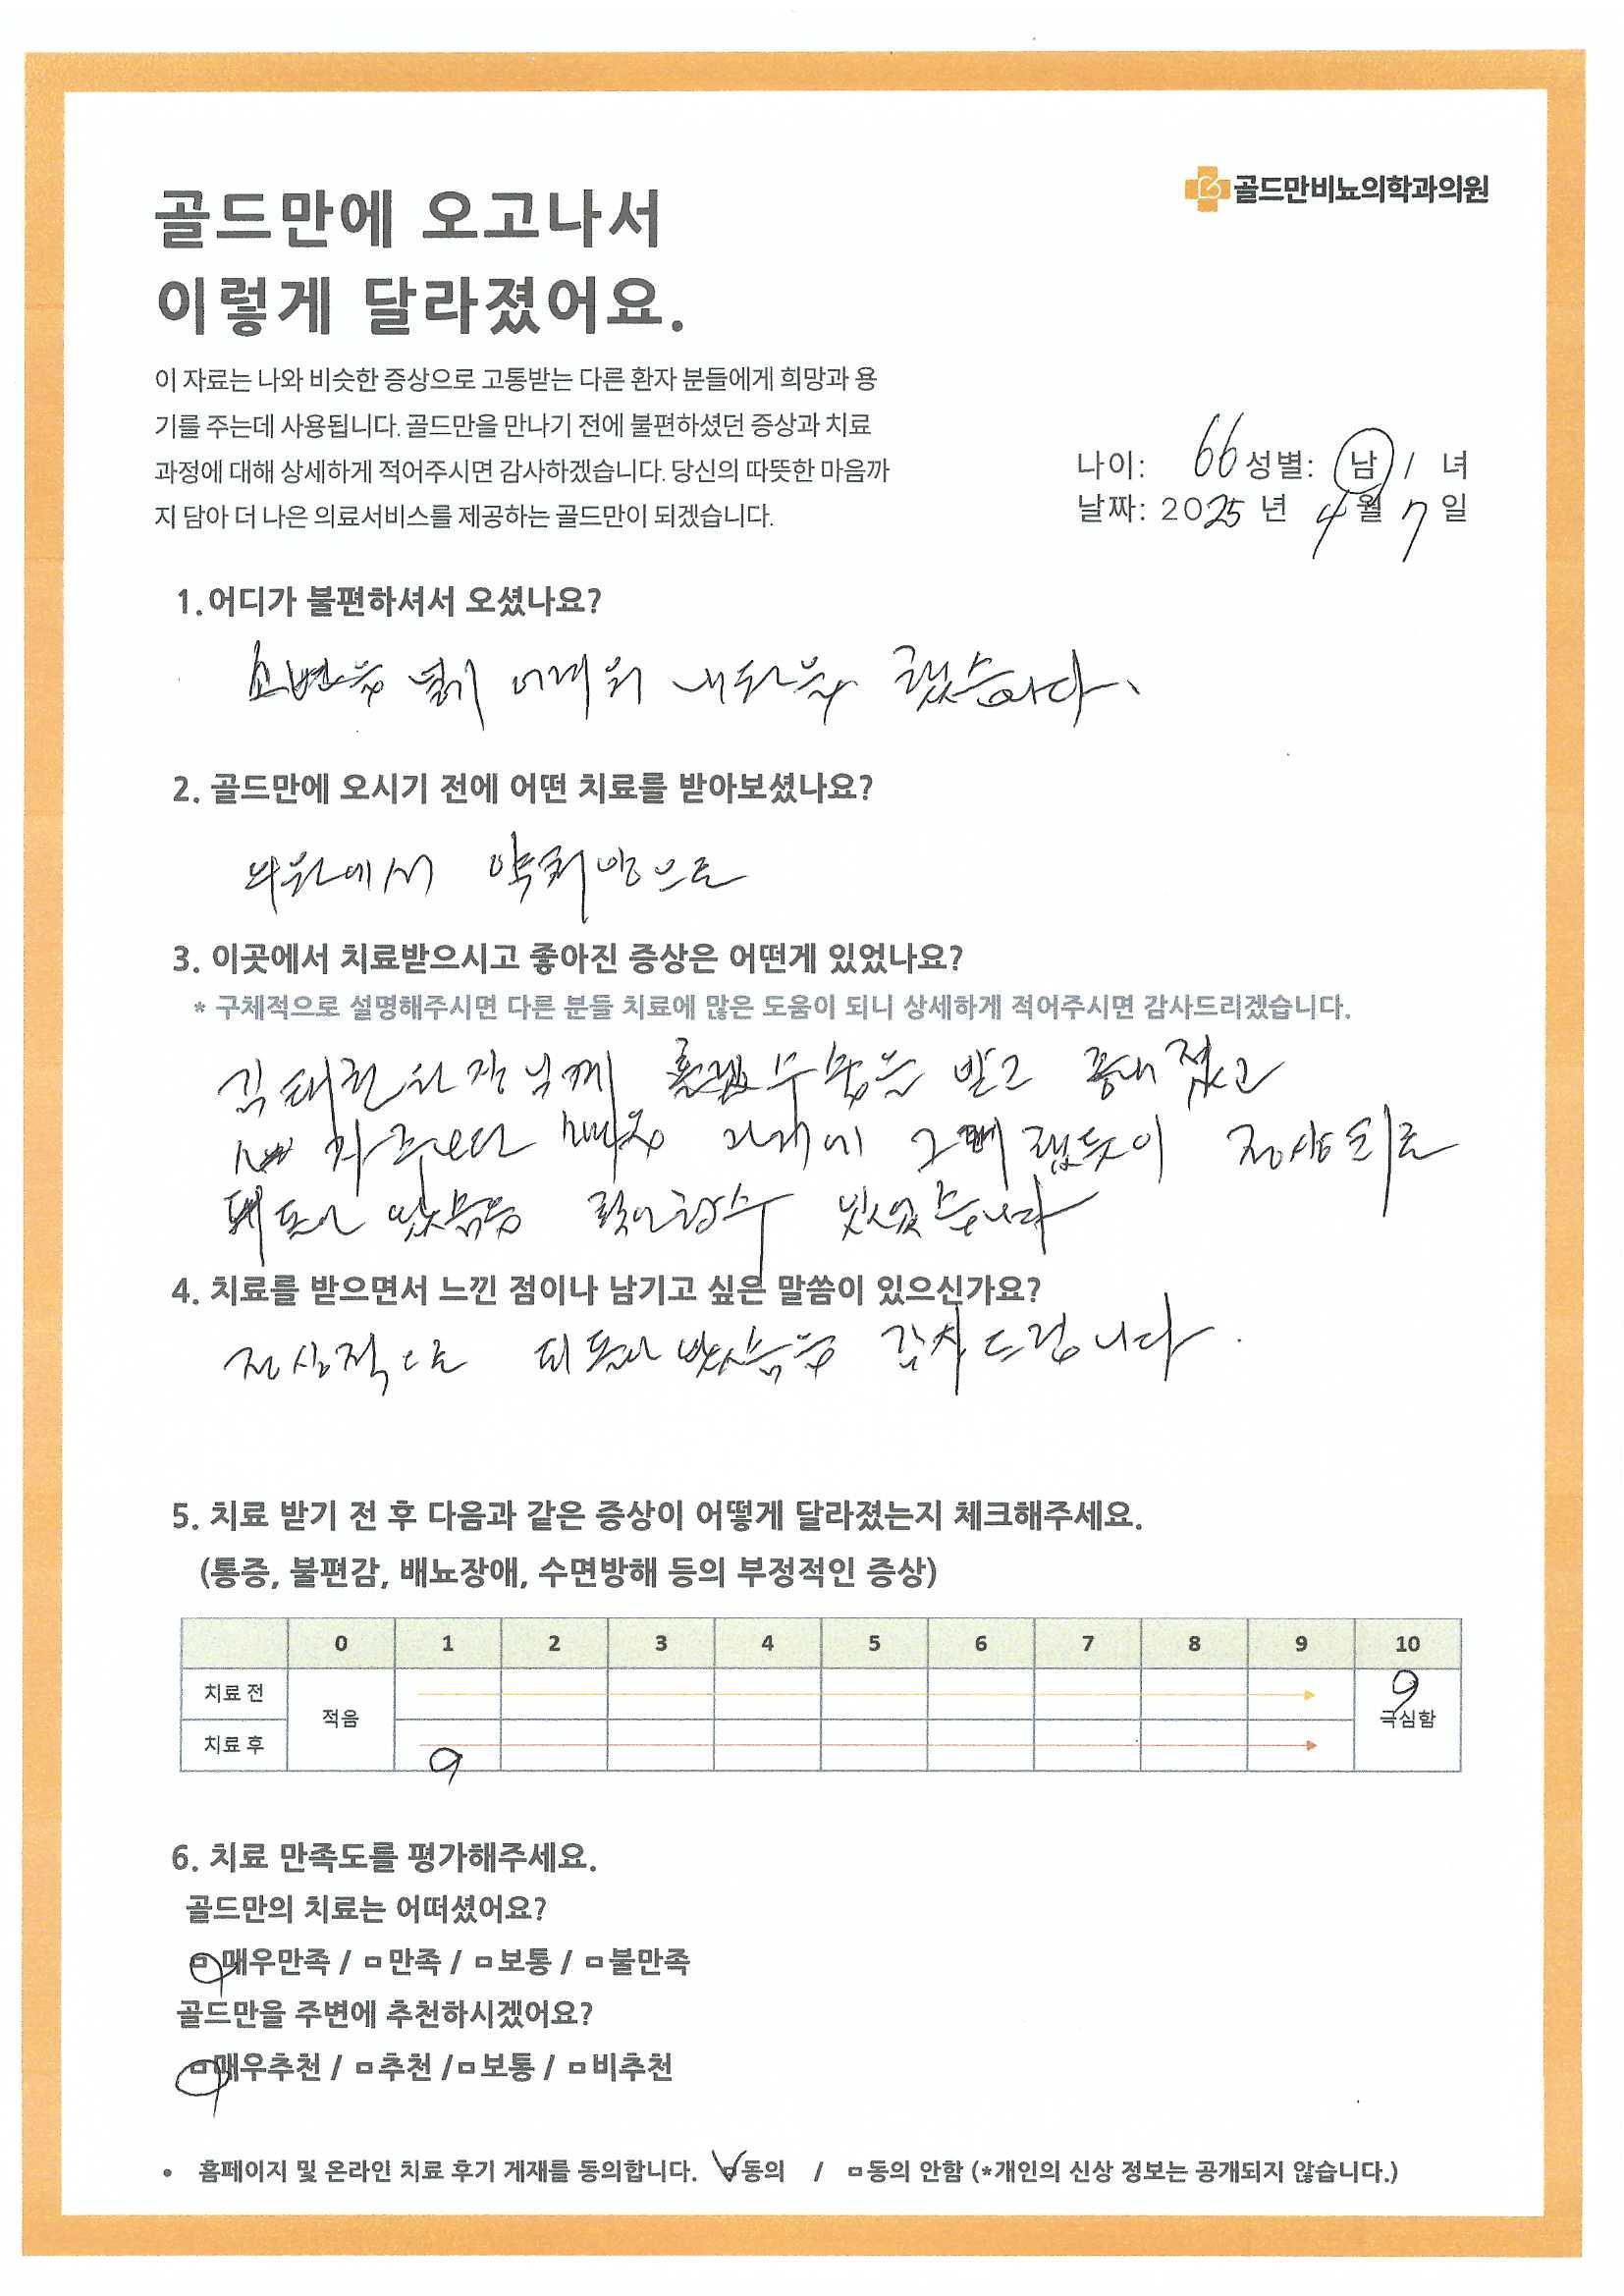 골드만비뇨의학과의원
골드만에 오고나서
이렇게 달라졌어요.
이 자료는 나와 비슷한 증상으로 고통받는 다른 환자 분들에게 희망과 용
기를 주는데 사용됩니다. 골드만을 만나기 전에 불편하셨던 증상과 치료
과정에 대해 상세하게 적어주시면 감사하겠습니다. 당신의 따뜻한 마음까
지 담아 더 나은 의료서비스를 제공하는 골드만이 되겠습니다.
나이: 66 성별: 남 / 녀
날짜: 2025 년 4 월 7 일
1. 어디가 불편하셔서 오셨나요?
소변을 보기 어려워 내원을 했습니다.
2. 골드만에 오시기 전에 어떤 치료를 받아보셨나요?
병원에서 약처방으로
3. 이곳에서 치료받으시고 좋아진 증상은 어떤게 있었나요?
* 구체적으로 설명해주시면 다른 분들 치료에 많은 도움이 되니 상세하게 적어주시면 감사드리겠습니다.
김태헌 원장님께 홀렙수술을 받고 좋아졌고
정상으로
있었습니다
4. 치료를 받으면서 느낀 점이나 남기고 싶은 말씀이 있으신가요?
정상적으로 감사드립니다.
5. 치료 받기 전 후 다음과 같은 증상이 어떻게 달라졌는지 체크해주세요.
(통증, 불편감, 배뇨장애, 수면방해 등의 부정적인 증상)
0 1 2 3 4 5 6 7 8 9 10
치료 전
적음 극심함
치료 후
6. 치료 만족도를 평가해주세요.
골드만의 치료는 어떠셨어요?
매우만족 / 만족 / 보통 / 불만족
골드만을 주변에 추천하시겠어요?
매우추천 / 추천 / 보통 / 비추천
• 홈페이지 및 온라인 치료 후기 게재를 동의합니다. 동의 / 동의 안함 (*개인의 신상 정보는 공개되지 않습니다.)